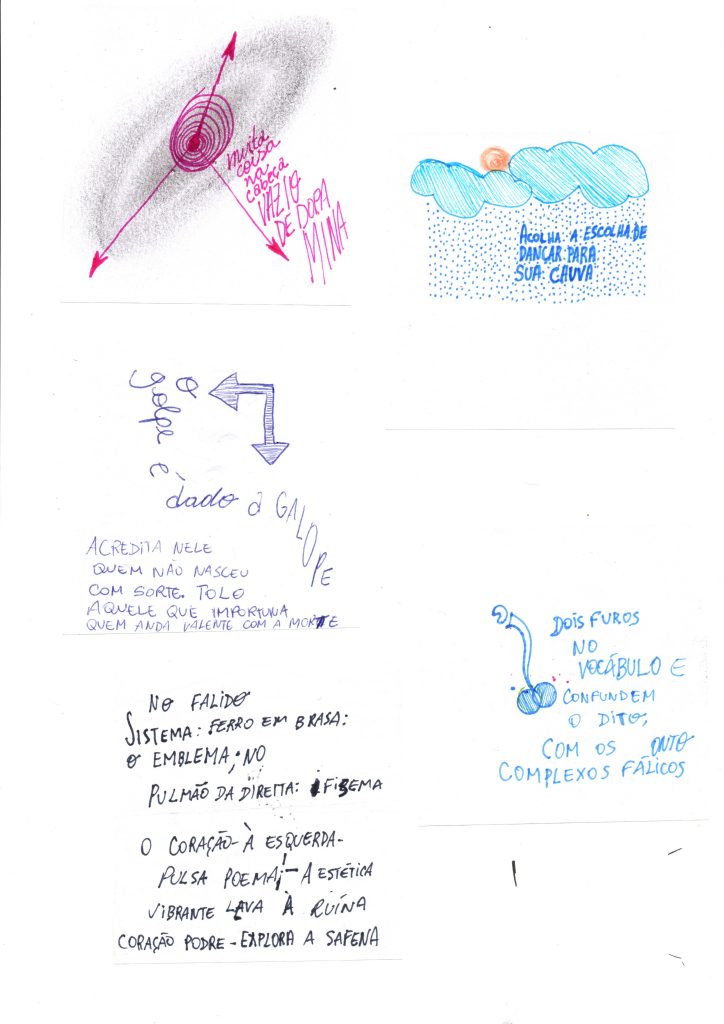 muita
coisa
na
cabeça
VAZIO
DE DOPA
MINA
ACOLHA A ESCOLHA DE
DANÇAR PARA
SUA CHUVA
O
golpe
é
dado a GALOPE
ACREDITA NELE
QUEM NÃO NASCEU
COM SORTE. TOLO
AQUELE QUE IMPORTUNA
QUEM ANDA VALENTE COM A MORTE
DOIS FUROS
NO
VOCÁBULO E
CONFUNDEM
O DITO,
COM OS ONTO
COMPLEXOS FÁLICOS
NO FALIDO
SISTEMA: FERRO EM BRASA:
O EMBLEMA; NO
PULMÃO DA DIREITA:
O CORAÇÃO - À ESQUERDA -
PULSA POEMA; - A ESTÉTICA
VIBRANTE LAVA À RUÍNA
CORAÇÃO PODRE - EXPLORA A SAFENA